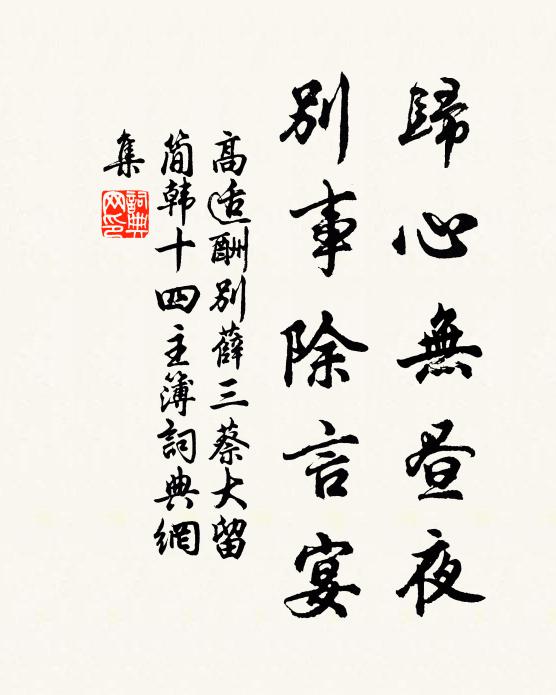 歸心無昼夜
別事除言宴
高适酬別薛三蔡大留
简韩十四主簿詞典網
集
詞典网印